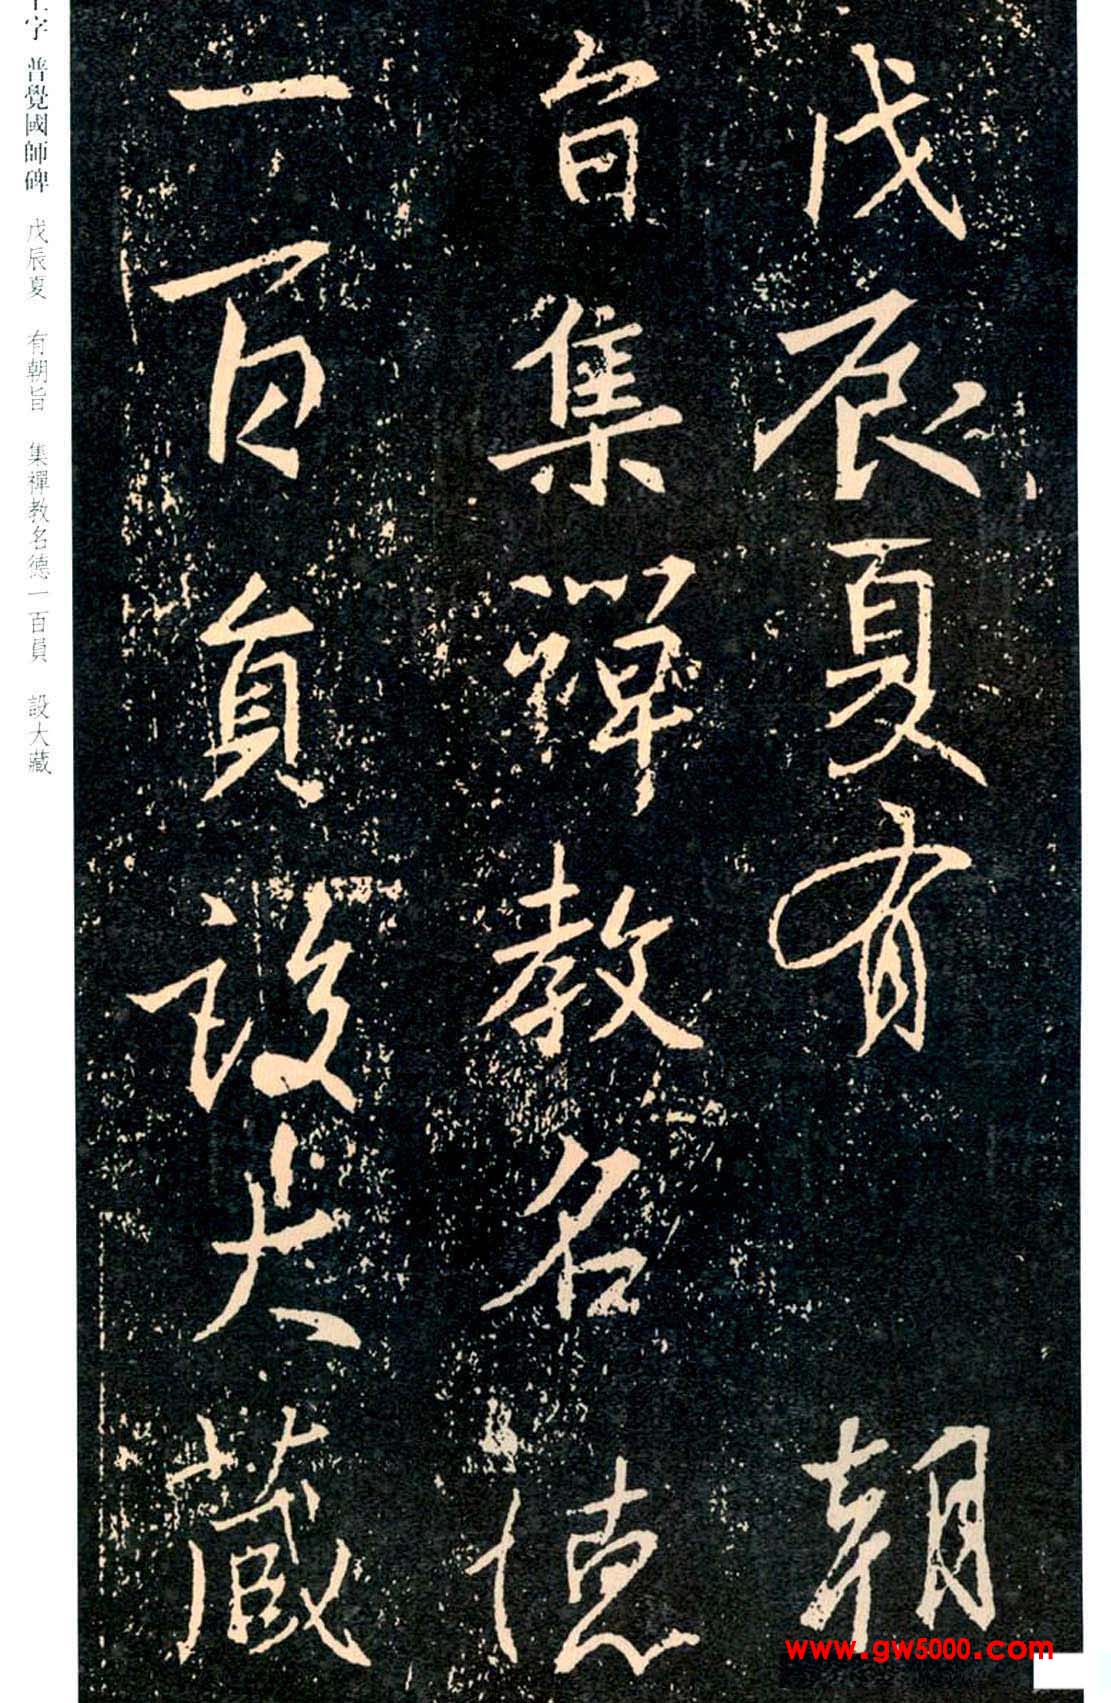 戊辰夏有 朝
旨集禪教名德
一百員設大藏
字 普覺國師碑 戊辰夏 有朝旨 集禪教名德一百員 設大藏
www.gw5000.com